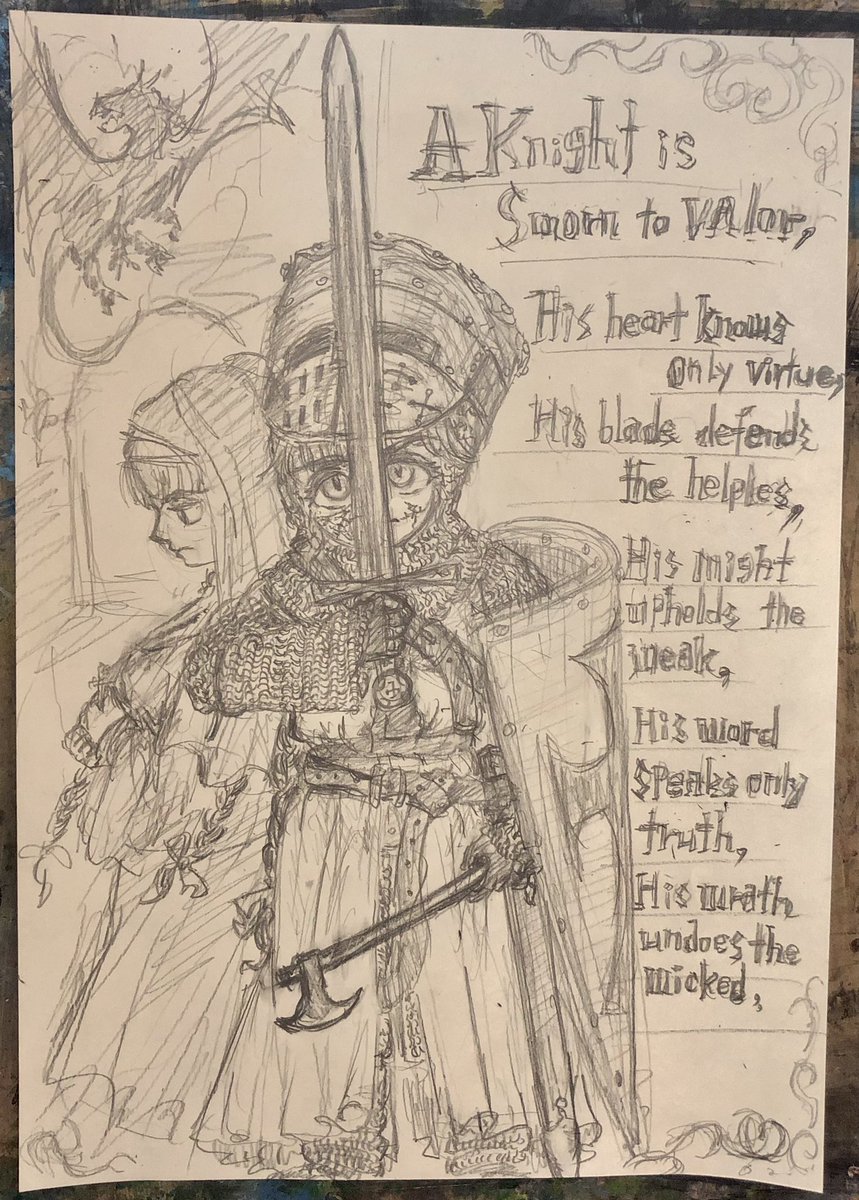 A Knight is
Sworn to VAlor,
His heart knows
only virtue,
His blade defends
the helples,
His might
upholds the
weak,
His word
speaks only
truth,
His wrath
undoes the
wicked,